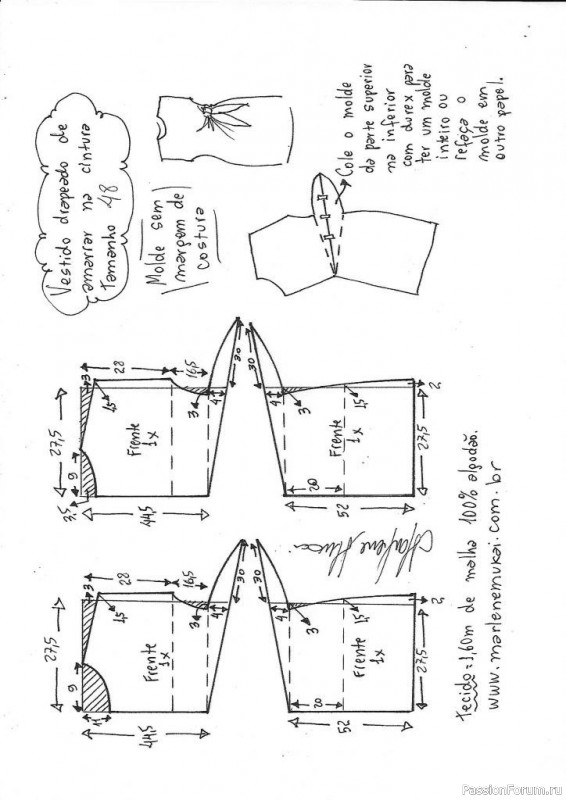 Vestido drapeado de
amarrar na cintura
Tamanho 48
Molde sem
margem de
costura
Cole o molde
da parte superior
na inferior
com durex para
ter um molde
inteiro ou
refaça o
molde em
outro papel.
3
28
16,5
27,5
1,5
9
3,5
Frente
1x
3
4
30
44,5
30
4
3
1,5
2
Frente
1x
20
27,5
52
3
28
16,5
27,5
1,5
9
11
Frente
1x
3
4
30
44,5
30
4
3
1,5
2
Frente
1x
20
27,5
52
Marlene Mukai
tecido = 1,60m de malha 100% algodão.
www.marlenemukai.com.br
PassionForum.ru